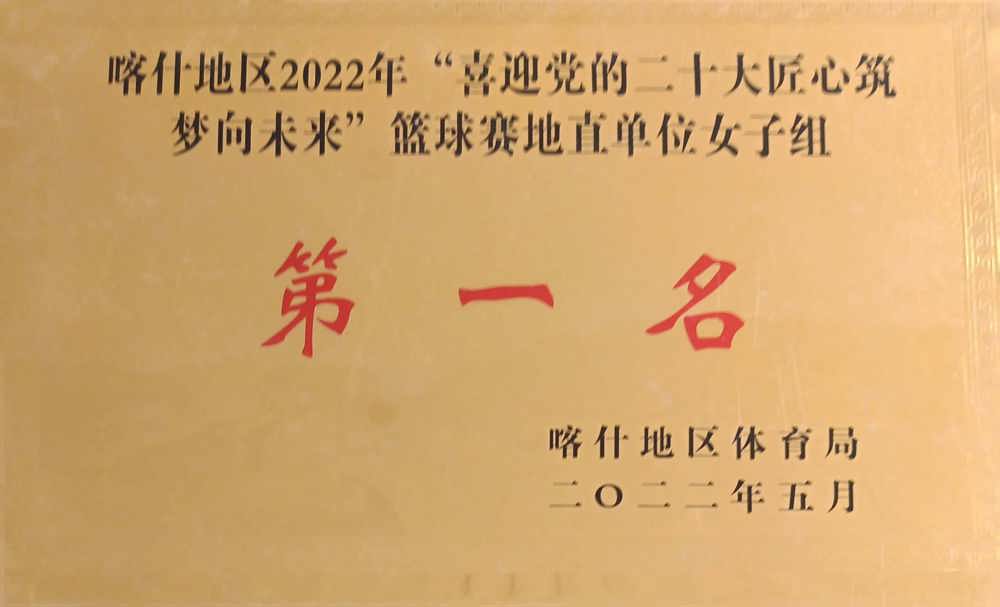 喀什地区2022年“喜迎党的二十大匠心筑
梦向未来”篮球赛地直单位女子组
第一名
喀什地区体育局
二〇二二年五月